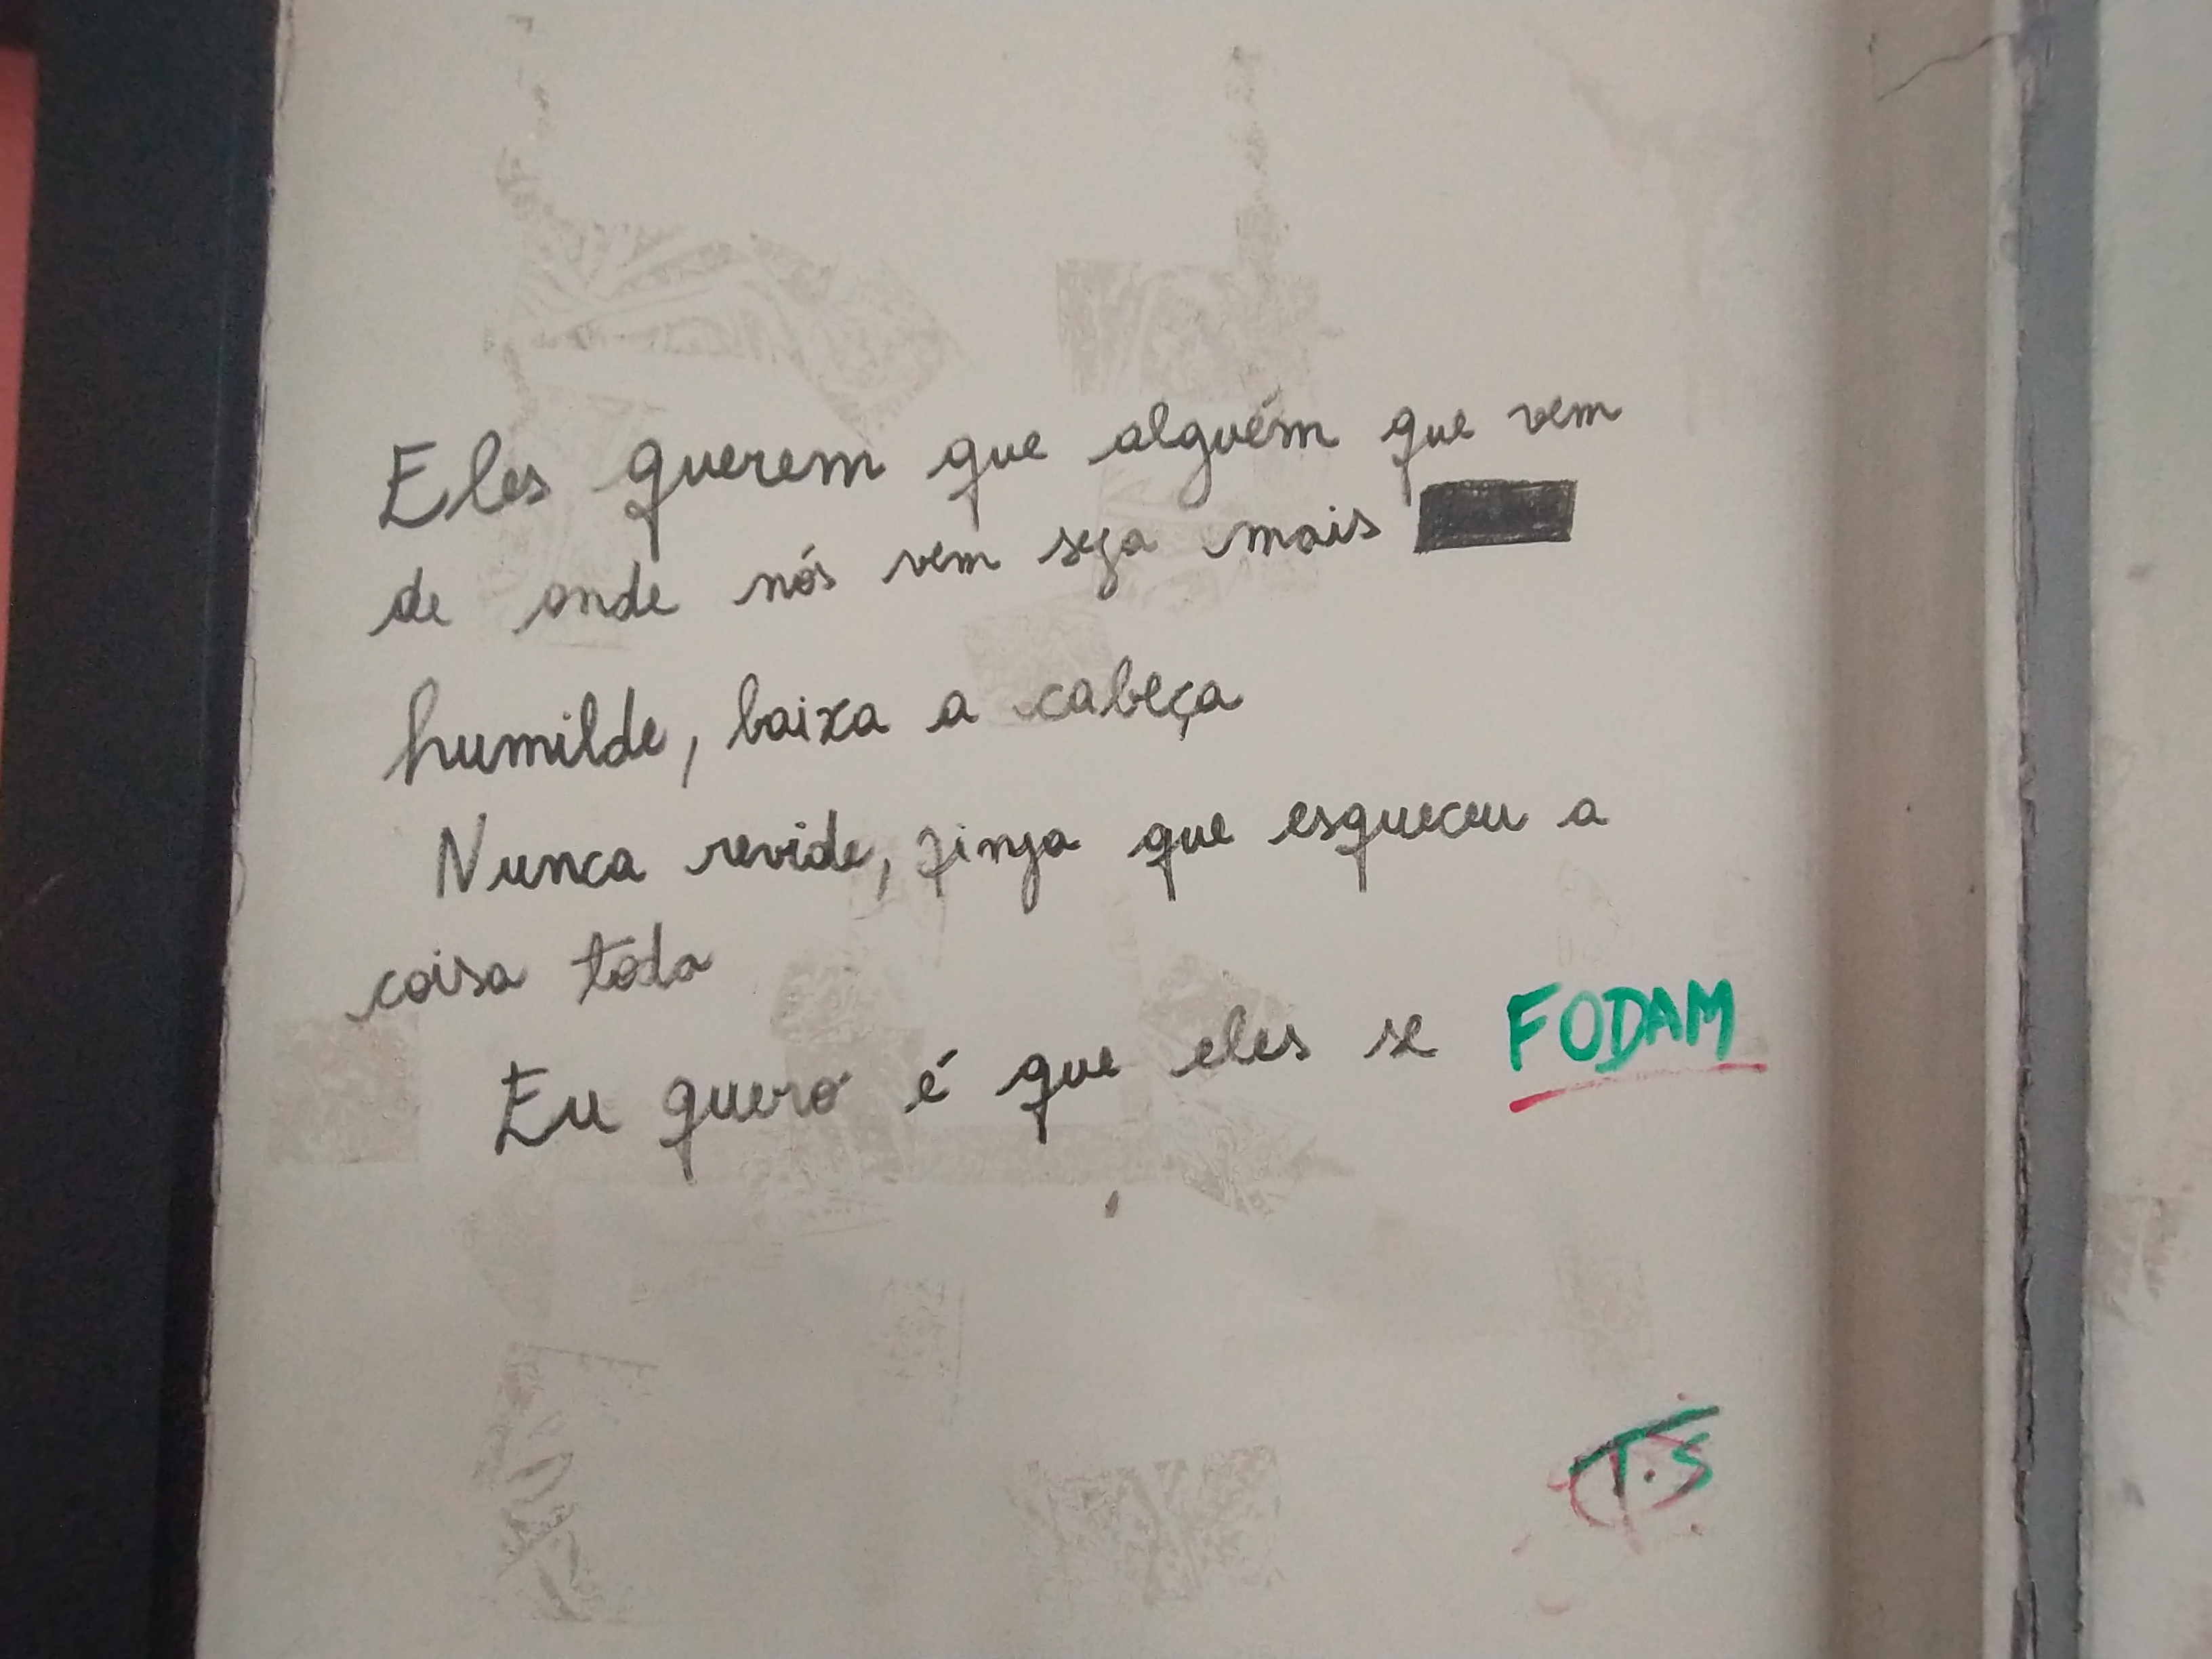 Eles querem que alguém que vem
de onde nós vem seja mais
humilde, baixa a cabeça
Nunca revide, finja que esqueceu a
coisa toda
Eu quero é que eles se FODAM
T.S